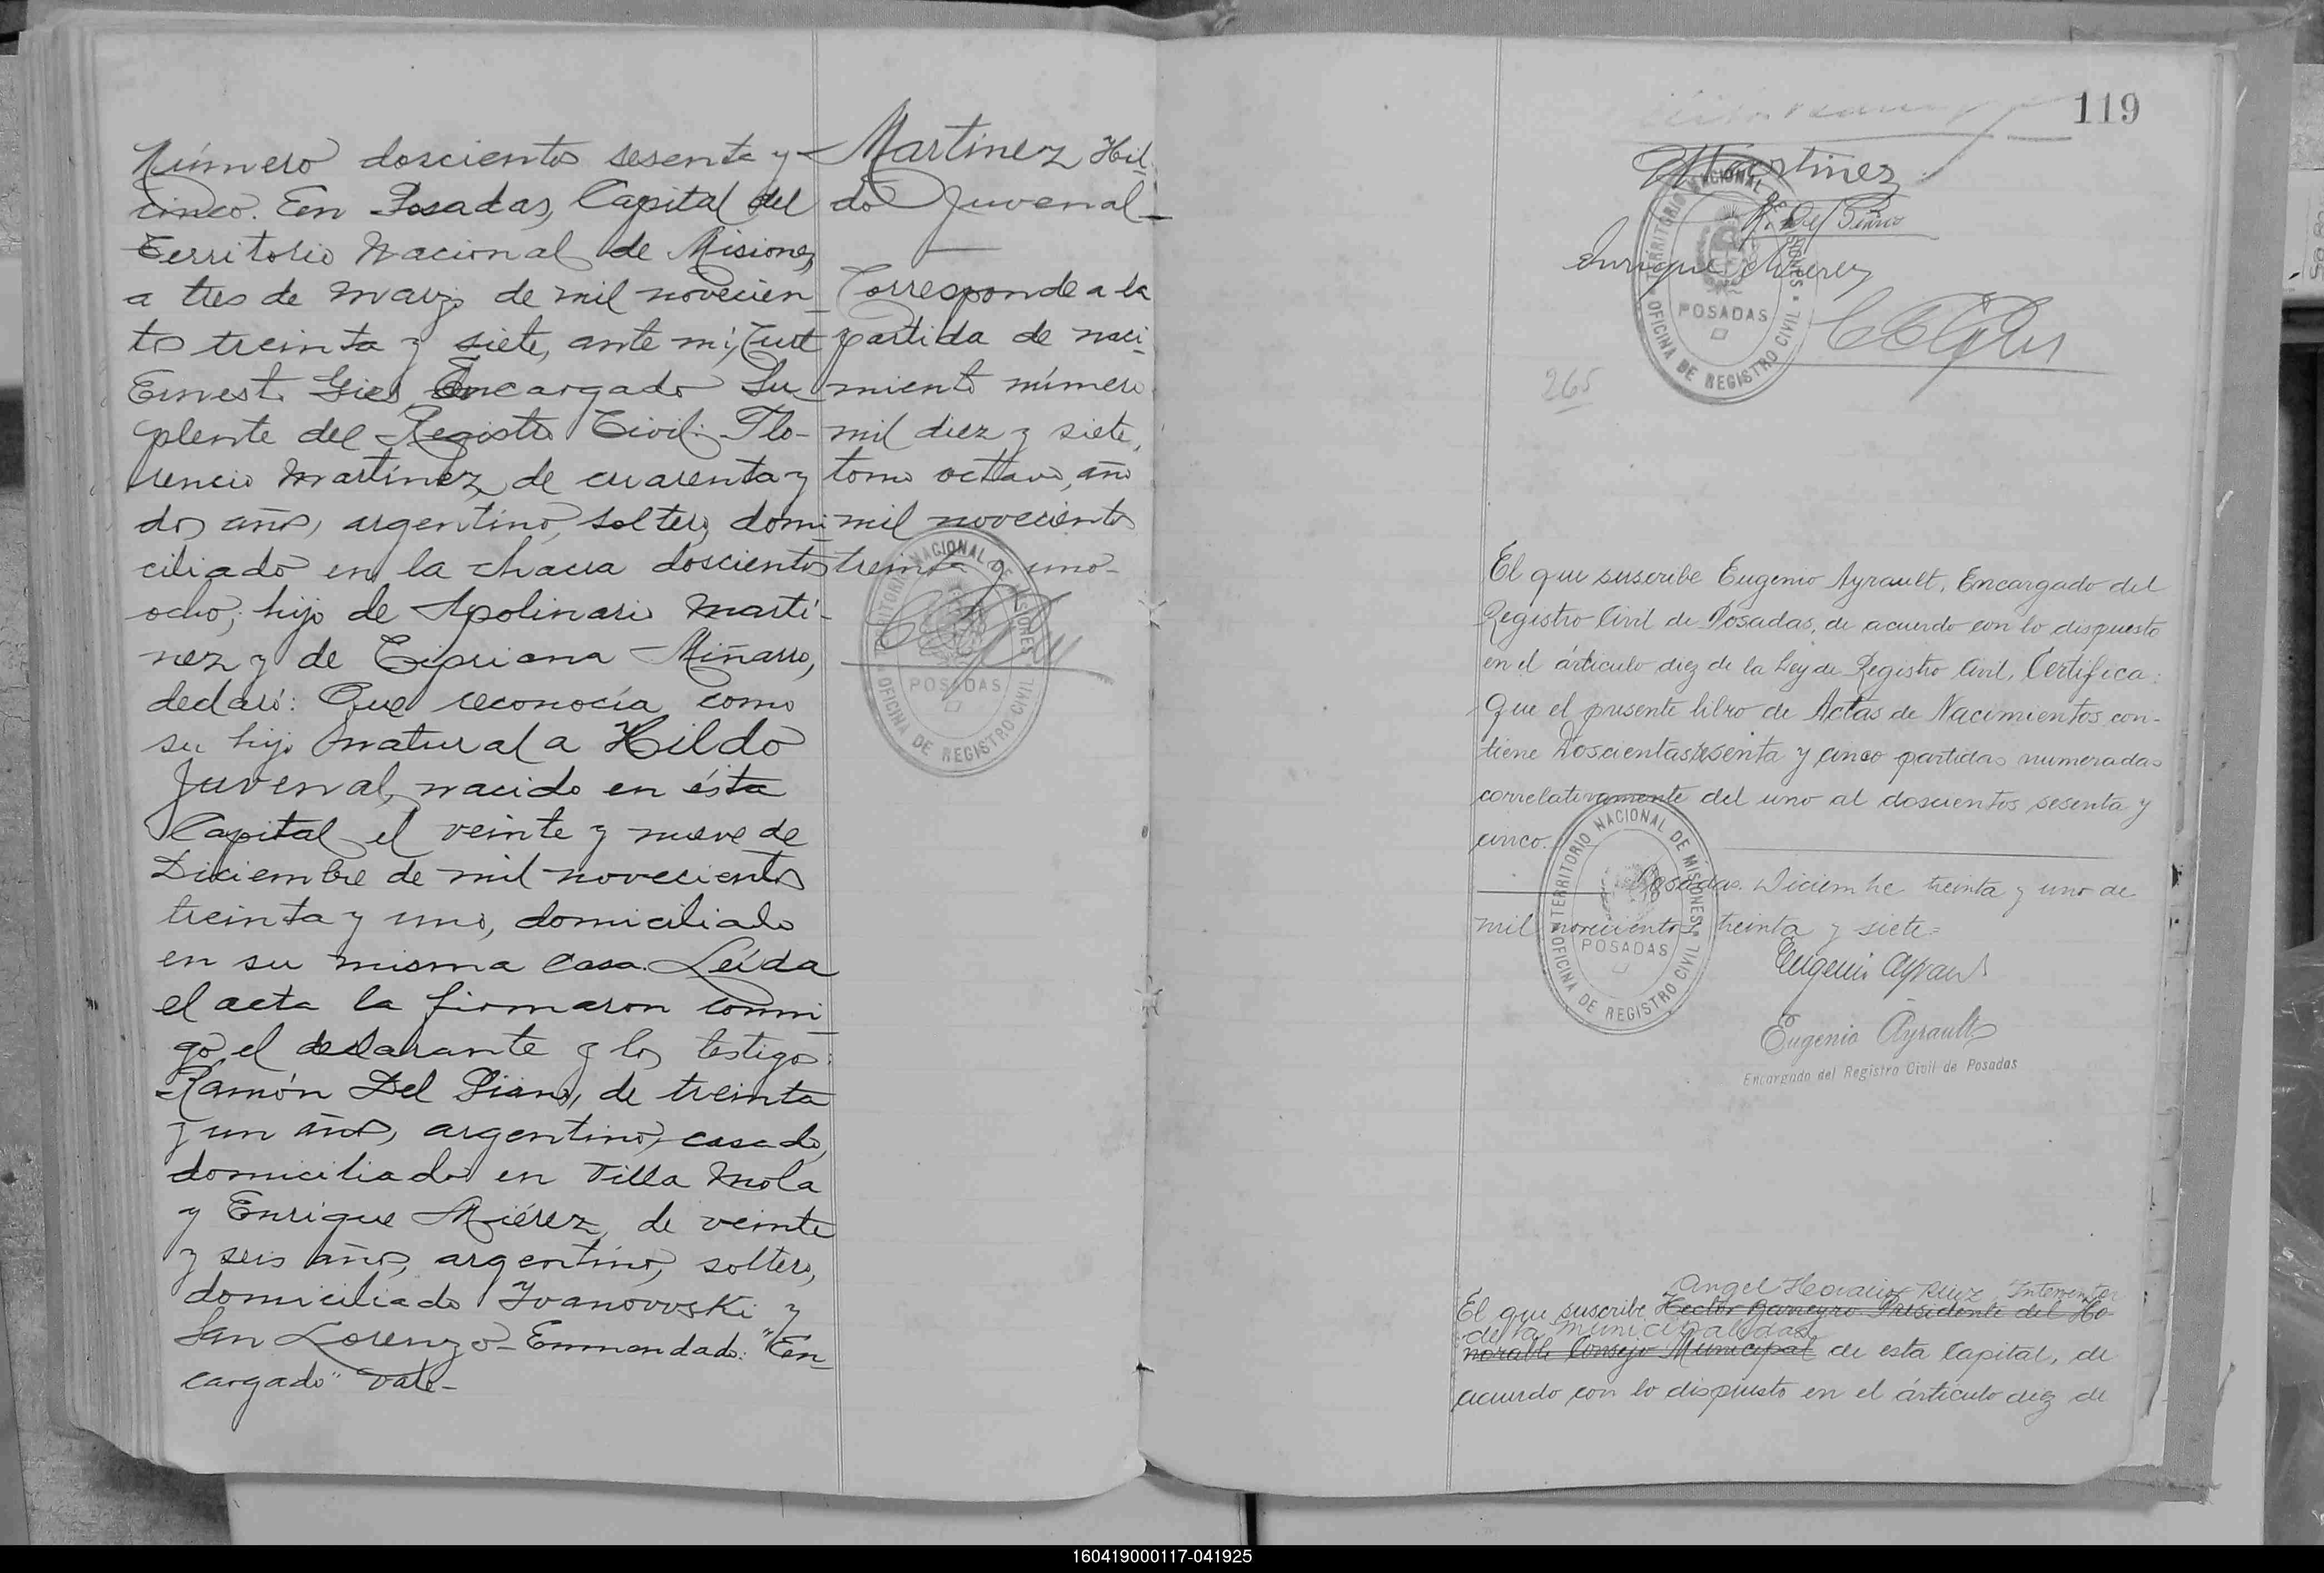 Número doscientos sesenta y
cinco. En Posadas, Capital del
Territorio Nacional de Misiones,
a tres de marzo de mil novecien-
tos treinta y siete, ante mí, Curt
Ernesto Gies, Encargado Su-
plente del Registro Civil: Flo-
rencio Martínez, de cuarenta y
dos años, argentino, soltero, domi-
ciliado en la chacra doscientos
ocho; hijo de Apolinario Martí-
nez y de Cipriana Miñarro,
declaró: Que reconocía como
su hijo natural a Hildo
Juvenal, nacido en ésta
Capital el veinte y nueve de
Diciembre de mil novecientos
treinta y uno, domiciliado
en su misma casa. Leída
el acta la firmaron conmi-
go el declarante y los testigos:
Ramón Del Piano, de treinta
y un años, argentino, casado,
domiciliado en Villa Mola
y Enrique Miérez, de veinte
y seis años, argentino, soltero,
domiciliado Ivanovski y
San Lorenzo - Enmendado: "En-
cargado" Vale -
Martinez Hil-
do Juvenal -
Corresponde a la
partida de naci-
miento número
mil diez y siete,
tomo octavo, año
mil novecientos
treinta y uno -
TERRITORIO NACIONAL DE MISIONES
POSADAS
OFICINA DE REGISTRO CIVIL
119
Martinez
R. Del Piano
Enrique Mierez
TERRITORIO NACIONAL DE MISIONES
POSADAS
OFICINA DE REGISTRO CIVIL
265
El que suscribe Eugenio Ayrault, Encargado del
Registro Civil de Posadas, de acuerdo con lo dispuesto
en el árticulo diez de la Ley de Registro Civil, Certifica:
Que el presente libro de Actas de Nacimientos con-
tiene Doscientas sesenta y cinco partidas numeradas
correlativamente del uno al doscientos sesenta y
cinco.
Posadas. Diciembre treinta y uno de
mil novecientos treinta y siete =
TERRITORIO NACIONAL DE MISIONES
POSADAS
OFICINA DE REGISTRO CIVIL
Eugenio Ayrault
Eugenio Ayrault
Encargado del Registro Civil de Posadas
Angel Horacio Ruiz, Interventor
El que suscribe Hector Barreyro Presidente del Ho-
de la Municipalidad
norable Consejo Municipal de esta Capital, de
acuerdo con lo dispuesto en el árticulo diez de
160419000117-041925